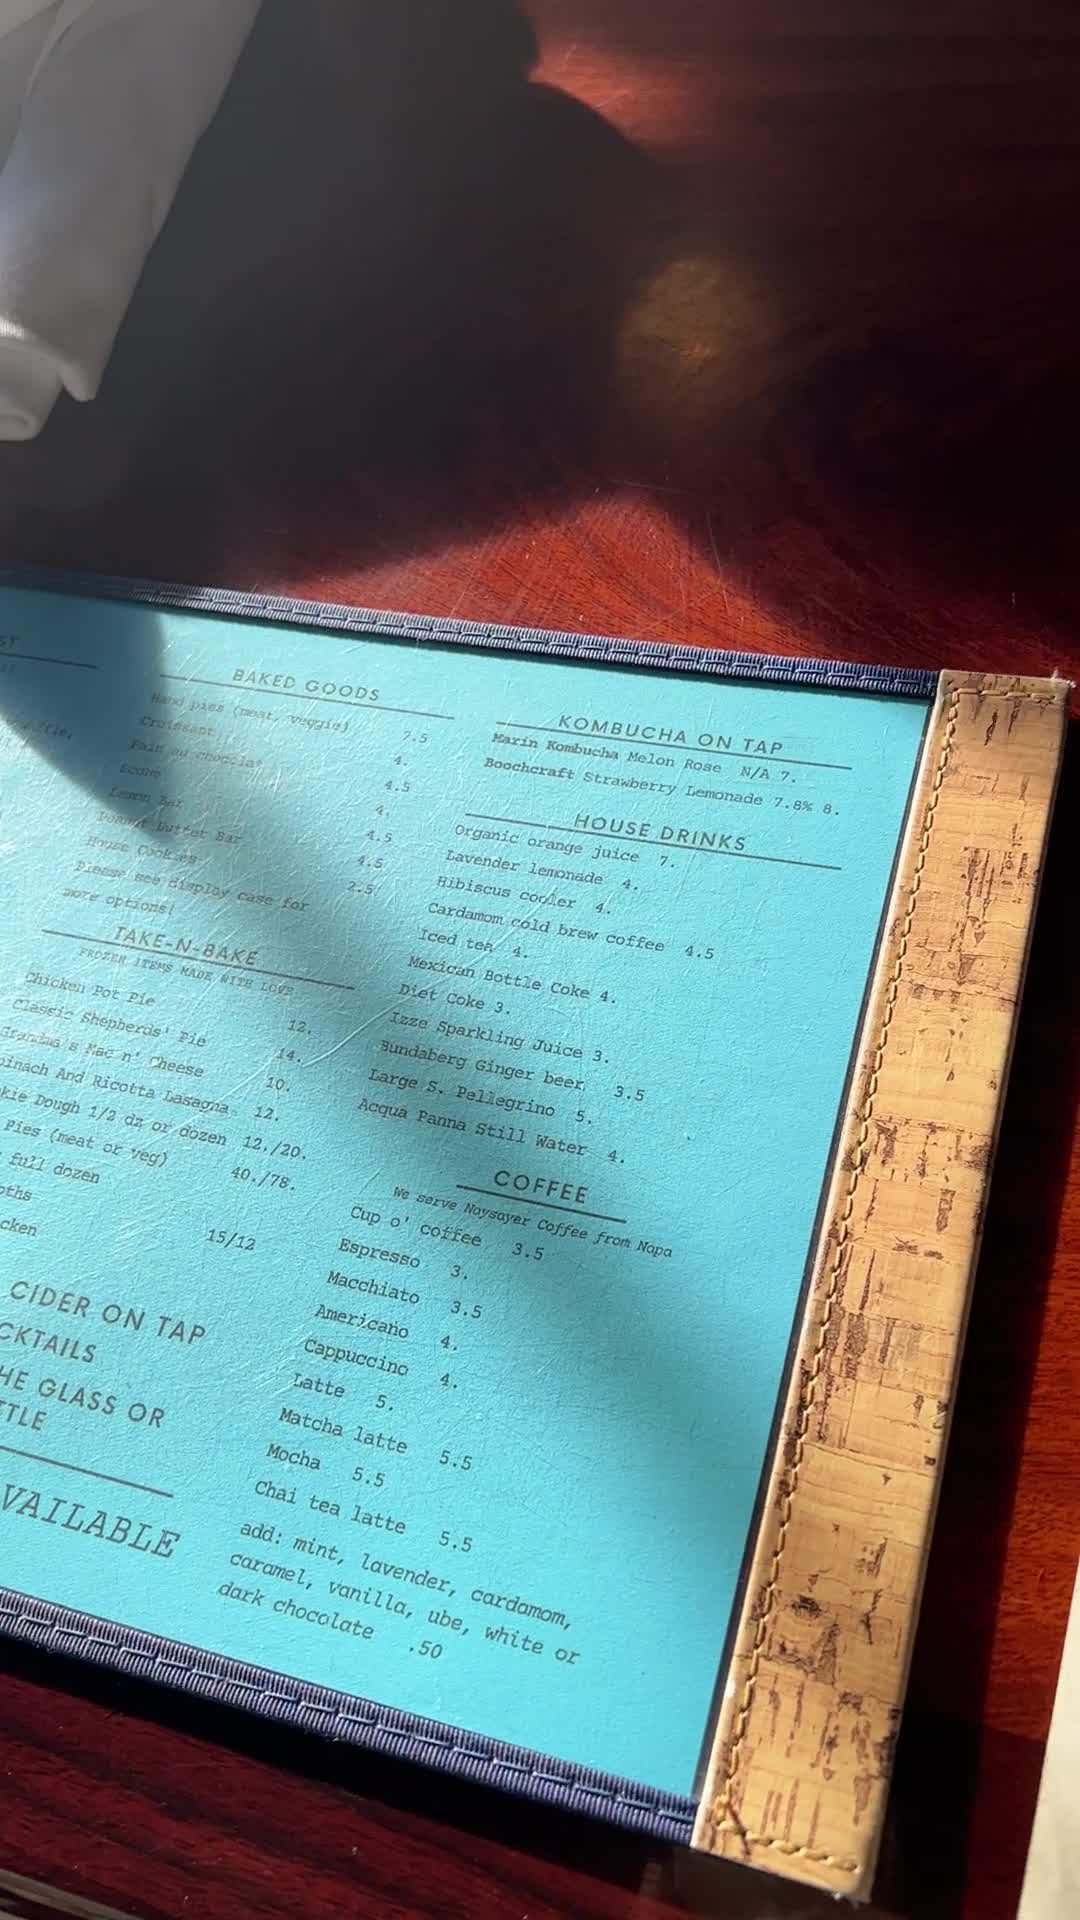 ST
BAKED GOODS
Hand pies (meat, veggie) 7.5
Croissant 4.
Pain au chocolat 4.5
Scone 4.
Lemon Bar 4.5
Peanut Butter Bar 4.5
House Cookies 2.5
Please see display case for
more options!
TAKE-N-BAKE
FROZEN ITEMS MADE WITH LOVE
Chicken Pot Pie 12.
Classic Shepherds' Pie 14.
Grandma's Mac n' Cheese 10.
pinach And Ricotta Lasagna 12.
kie Dough 1/2 dz or dozen 12./20.
Pies (meat or veg) 40./78.
full dozen
oths
cken 15/12
CIDER ON TAP
CKTAILS
HE GLASS OR
TTLE
VAILABLE
KOMBUCHA ON TAP
Marin Kombucha Melon Rose N/A 7.
Boochcraft Strawberry Lemonade 7.8% 8.
HOUSE DRINKS
Organic orange juice 7.
Lavender lemonade 4.
Hibiscus cooler 4.
Cardamom cold brew coffee 4.5
Iced tea 4.
Mexican Bottle Coke 4.
Diet Coke 3.
Izze Sparkling Juice 3.
Bundaberg Ginger beer 3.5
Large S. Pellegrino 5.
Acqua Panna Still Water 4.
COFFEE
We serve Naysayer Coffee from Napa
Cup o' coffee 3.5
Espresso 3.
Macchiato 3.5
Americano 4.
Cappuccino 4.
Latte 5.
Matcha latte 5.5
Mocha 5.5
Chai tea latte 5.5
add: mint, lavender, cardamom,
caramel, vanilla, ube, white or
dark chocolate .50